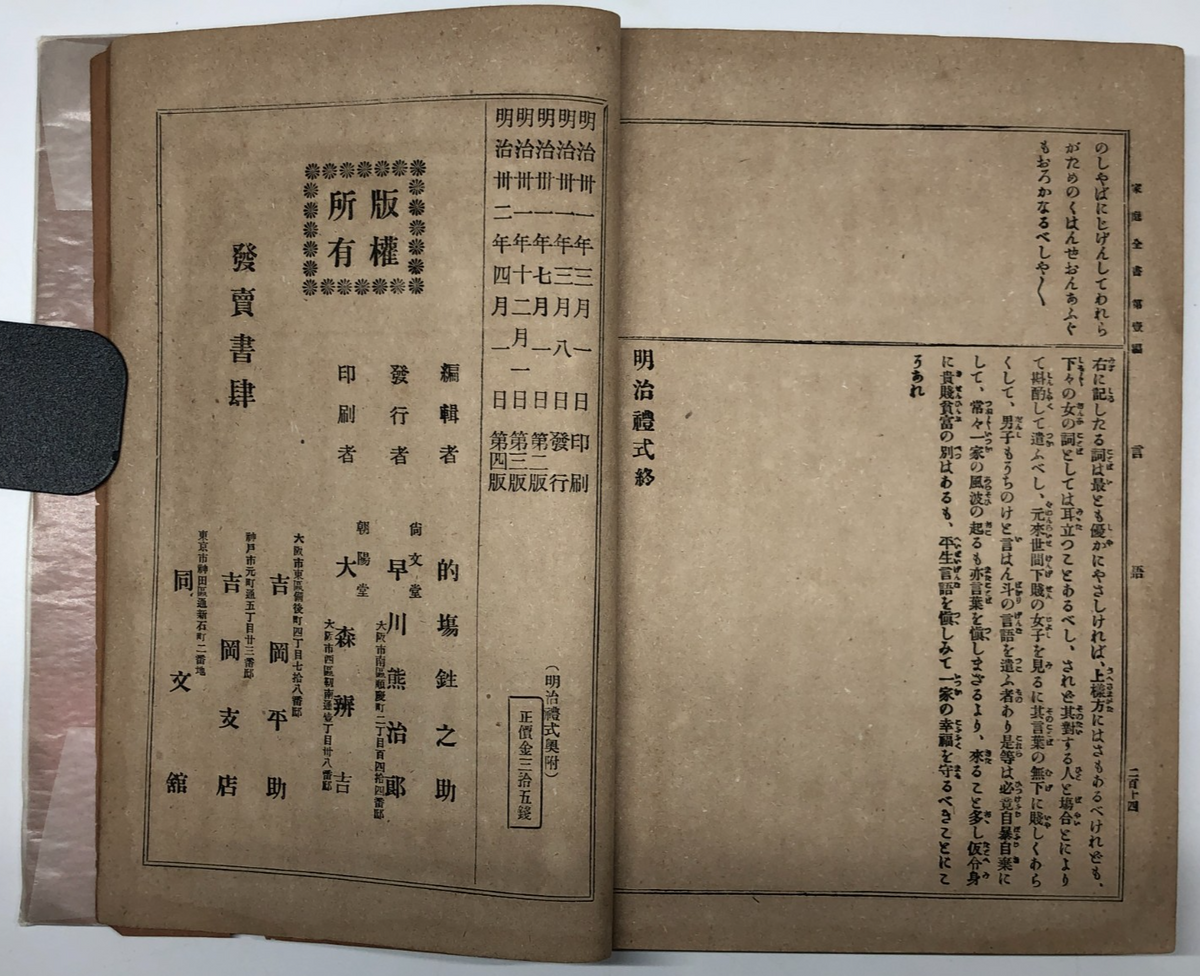 家庭全書 第壹編
言語
二百十四
のしやばにじげんしてわれら
がためのくはんせおんあふぐ
もおろかなるべしや〱
右に記したる詞は最とも優かにやさしければ、上樣方にはさもあるべけれども、
下々の女の詞としては耳立つことあるべし、されど其對する人と塲合とにより
て斟酌して遣ふべし、元來世間下賤の女子を見るに其言葉の無下に賤しくあら
くして、男子もうちのけと言はん斗の言語を遣ふ者あり是等は必竟自暴自棄に
して、常々一家の風波の起るも亦言葉を愼しまざるより、來ること多し仮令身
に貴賤貧富の別はあるも、平生言語を愼しみて一家の幸福を守るべきことにこ
うあれ
明治禮式終
明治卅一年三月一日印刷
明治卅一年三月八日發行
明治卅一年七月一日第二版
明治卅一年十二月一日第三版
明治卅二年四月一日第四版
(明治禮式奧附)
正價金三拾五錢
版權
所有
編輯者 的塲鉎之助
大阪市南區順慶町二丁目百四拾四番邸
發行者 尙文堂 早川熊治郎
大阪市西區靭南通壹丁目卅八番邸
印刷者 朝陽堂 大森辨吉
發賣書肆
大阪市東區備後町四丁目七拾八番邸
吉岡平助
神戸市元町通五丁目廿三番邸
吉岡支店
東京市神田區通新石町二番地
同文舘